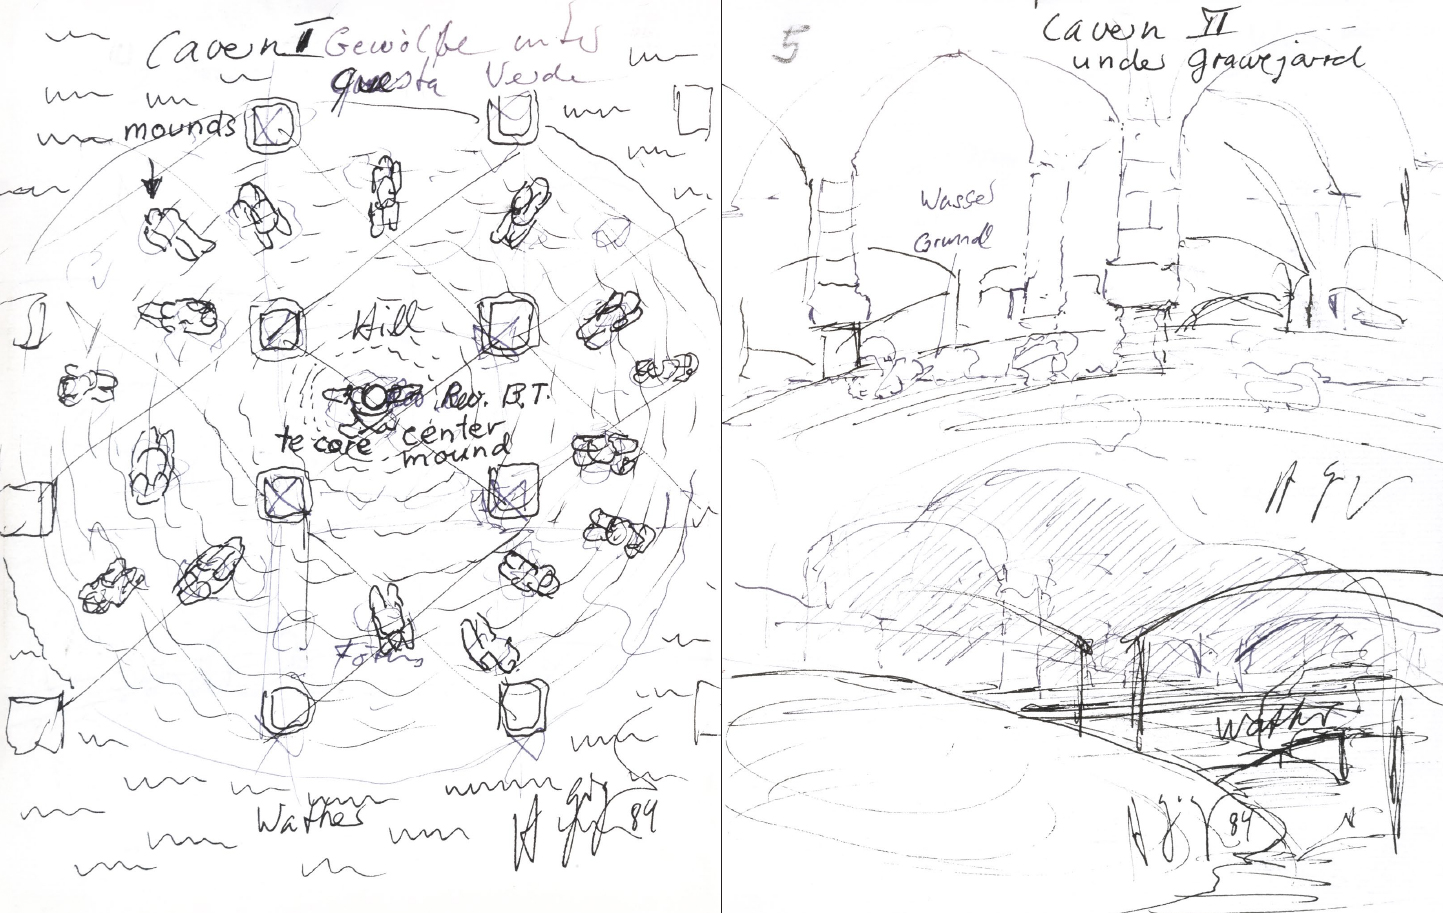 Cavern II Gewölbe unter
questa Verde
mounds
Hill
Rev. B.T.
te core center
mound
Fötus
Wather
84
5
Cavern VI
under gravejard
Wasser
Grund
Wather
84